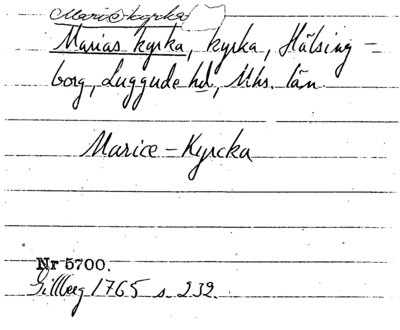 Mariækyrka
Marias kyrka, kyrka, Hälsing-
borg, Luggude hd, Mhs. län
Marice-Kyrcka
Nr 5700.
Gillberg 1765 s. 232.